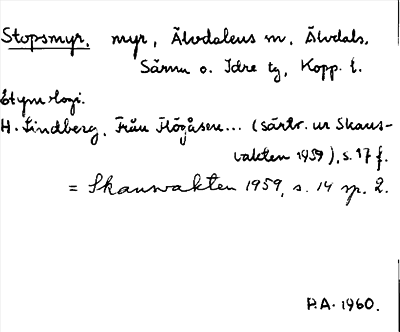 Stopsmyr. myr, Älvdalens sn, Älvdals,
Särna o. Idre tg, Kopp. l.
Etymologi.
H. Lindberg, Från Högåsen... (särtr. ur Skans-
vakten 1959), s. 17 f.
= Skansvakten 1959, s. 14 sp. 2.
P.A. 1960.